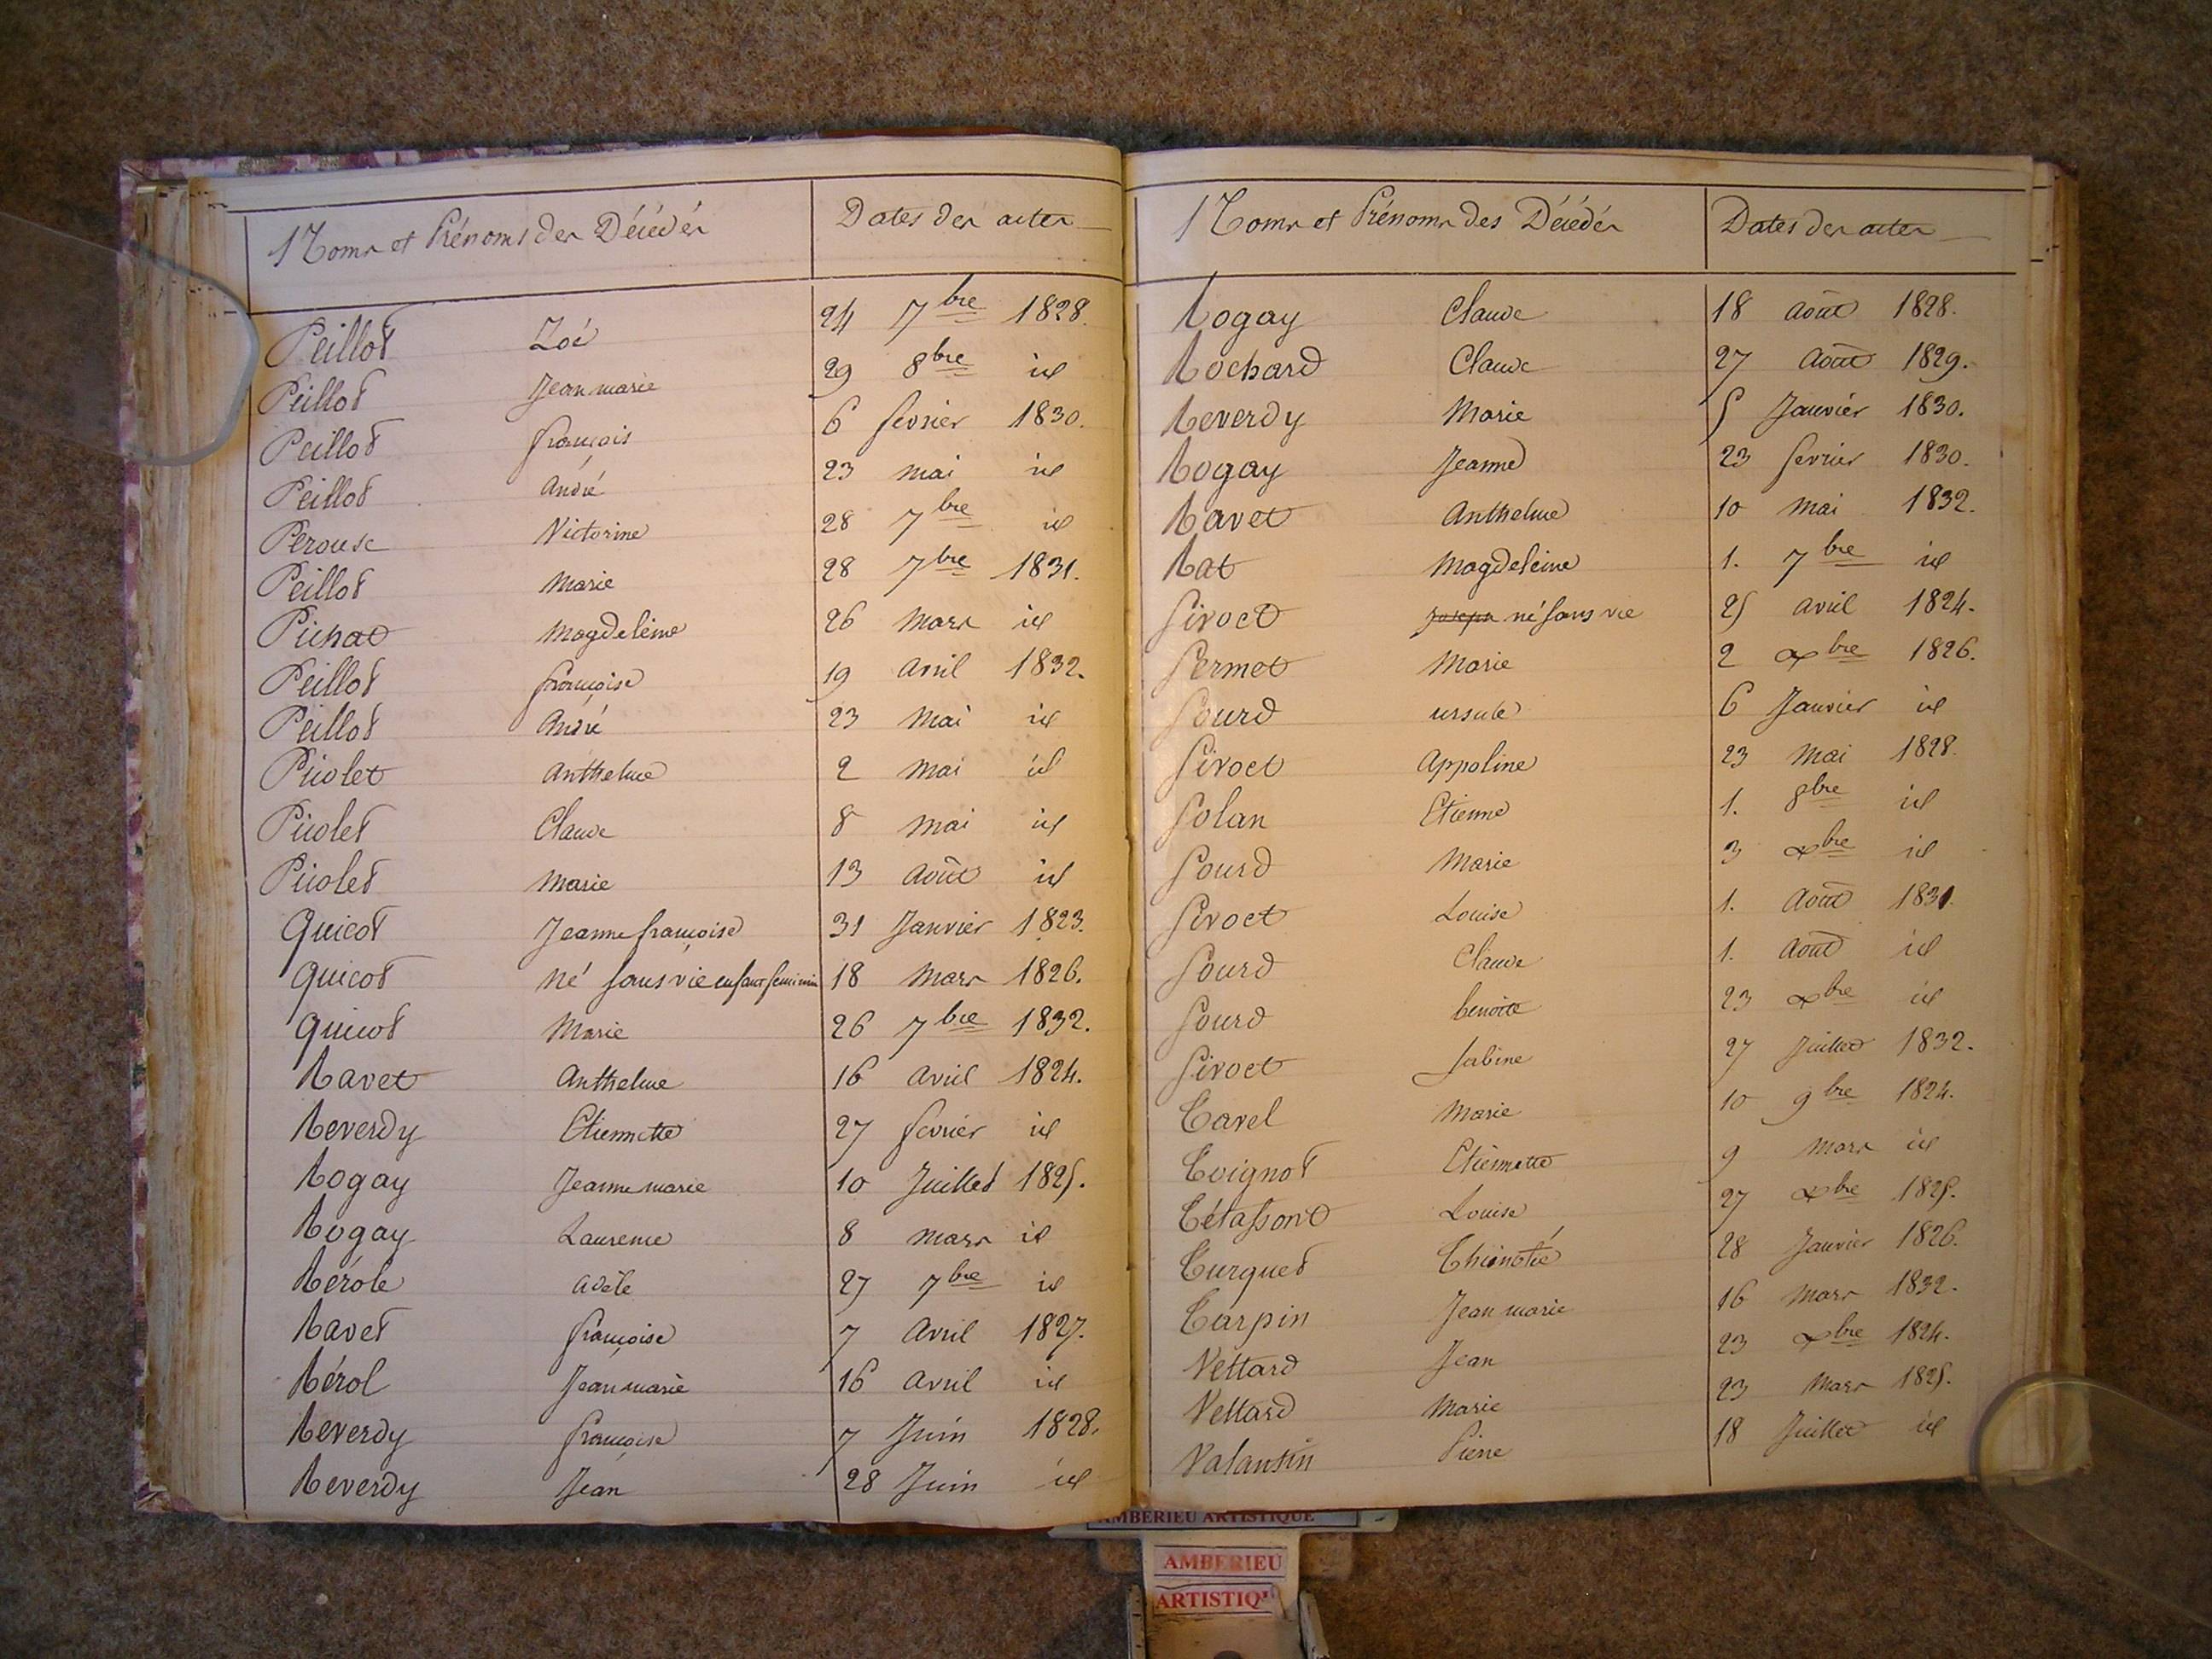 Noms et Prénoms des Décédés Dates des actes
Peillot Zoé 24 7bre 1828.
Peillot Jean marie 29 8bre id
Peillot françois 6 fevrier 1830.
Peillot André 23 mai id
Perouse Victorine 28 7bre id
Peillot Marie 28 7bre 1831.
Pichat Magdeleine 26 Mars id
Peillot françoise 19 avril 1832.
Peillot André 23 Mai id
Picolet Anthelme 2 Mai id
Picolet Claude 8 mai id
Picolet Marie 13 août id
Quicot Jeanne françoise 31 Janvier 1823.
Quicot né sans vie enfant feminin 18 Mars 1826.
Quicot Marie 26 7bre 1832.
Ravet Anthelme 16 avril 1824.
Reverdy Etiennette 27 fevrier id
Rogay Jeanne marie 10 Juillet 1825.
Rogay Laurence 8 mars id
Rérole adèle 27 7bre id
Ravet françoise 7 Avril 1827.
Rérol Jean marie 16 avril id
Reverdy françoise 7 Juin 1828.
Reverdy Jean 28 Juin id
Noms et Prénoms des Décédés Dates des actes
Rogay Claude 18 août 1828.
Rochard Claude 27 Août 1829.
Reverdy Marie 5 Janvier 1830.
Rogay Jeanne 23 fevrier 1830.
Ravet Anthelme 10 Mai 1832.
Rat Magdeleine 1. 7bre id
Sivoct Joseph né sans vie 25 avril 1824.
Sermet Marie 2 xbre 1826.
Sourd ursule 6 Janvier id
Sivoct Appoline 23 Mai 1828.
Solan Etienne 1. 8bre id
Sourd Marie 3 xbre id
Sivoct Louise 1. Août 1831.
Sourd Claude 1. Août id
Sourd benoite 23 xbre id
Sivoct Sabine 27 Juillet 1832.
Tavel Marie 10 9bre 1824.
Toignot Etiennette 9 Mars id
Tétassond Louise 27 xbre 1825.
Turquet 28 Janvier 1826.
Turpin Jean marie 16 Mars 1832.
Vettard Jean 23 xbre 1824.
Vettard Marie 23 Mars 1825.
Valansin Pierre 18 Juillet id
AMBERIEU ARTISTIQUE
AMBERIEU